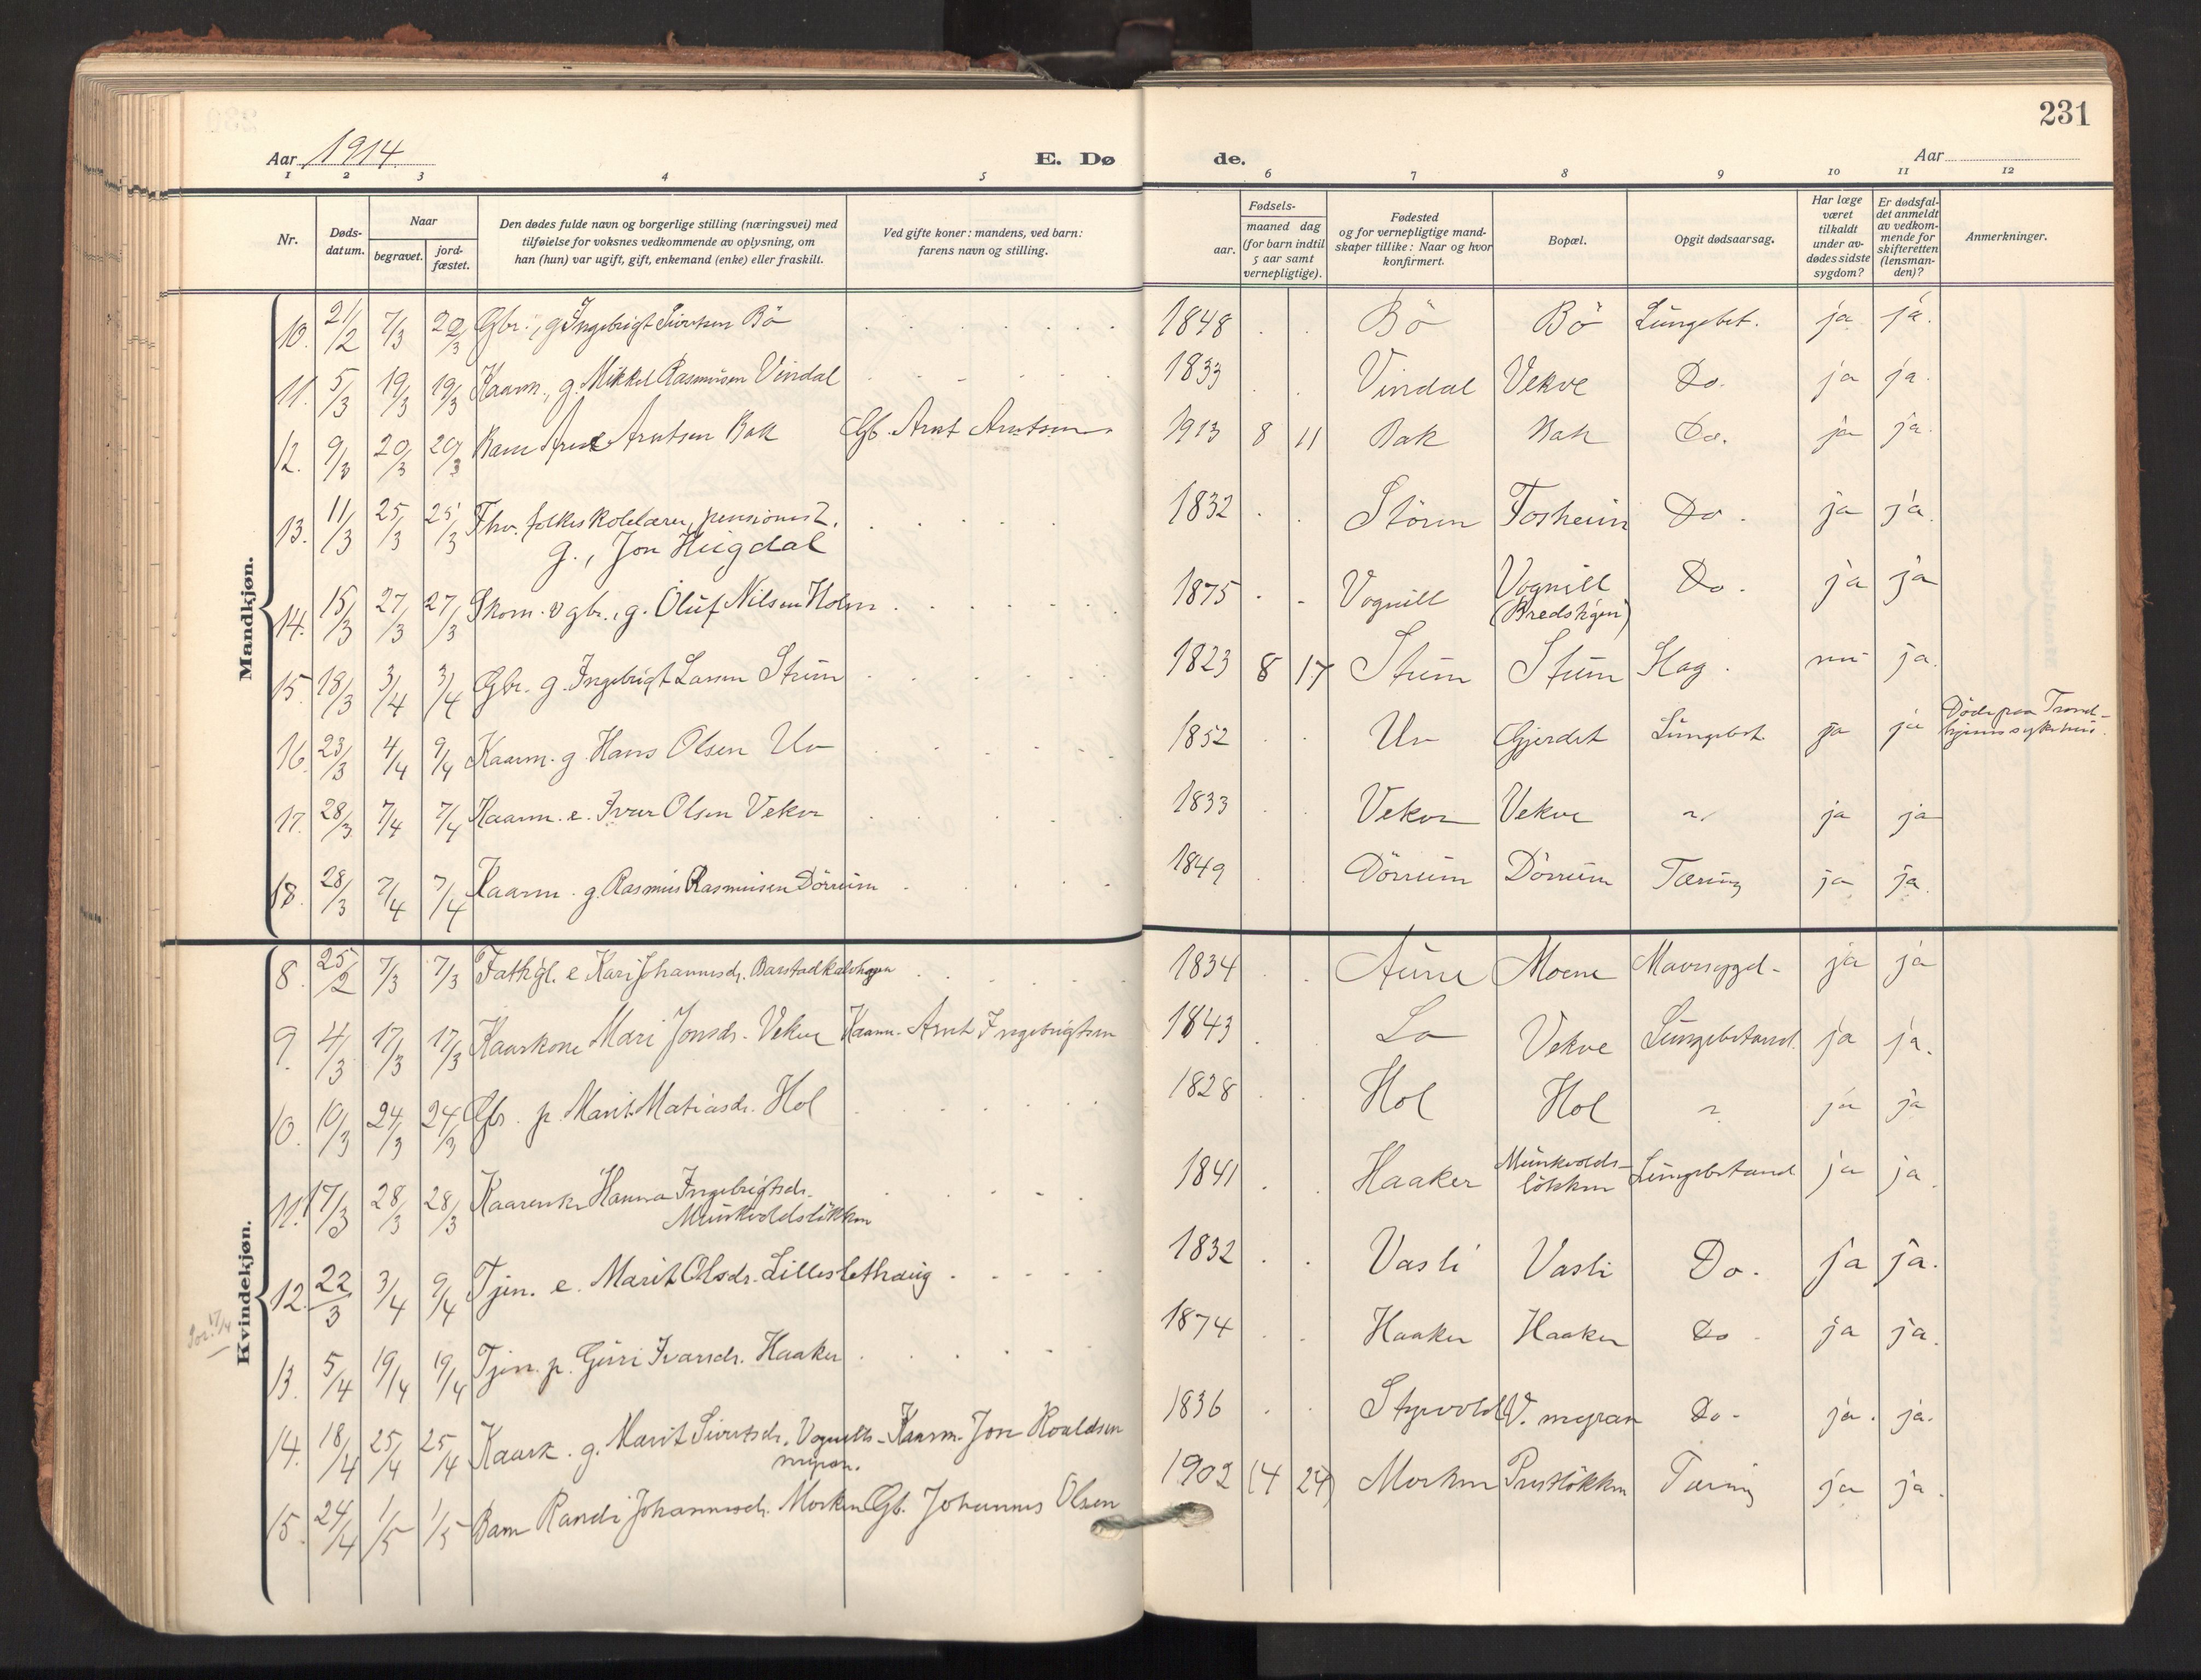 231
Aar 1914
E. Dø
de.
Aar
1 2 3 4 5 6 7 8 9 10 11 12
Nr.
Døds-
datum.
Naar
begravet.
jord-
fæstet.
Den dødes fulde navn og borgerlige stilling (næringsvei) med
tilføielse for voksnes vedkommende av oplysning, om
han (hun) var ugift, gift, enkemand (enke) eller fraskilt.
Ved gifte koner: mandens, ved barn:
farens navn og stilling.
Fødsels-
aar.
maaned dag
(for barn indtil
5 aar samt
vernepligtige).
Fødested
og for vernepligtige mand-
skaper tillike: Naar og hvor
konfirmert.
Bopæl.
Opgit dødsaarsag.
Har læge
været
tilkaldt
under av-
dødes sidste
sygdom?
Er dødsfal-
det anmeldt
av vedkom-
mende for
skifteretten
(lensman-
den)?
Anmerkninger.
Mandkjøn.
10. 21/2 7/3 20/3 Gbr., g Ingebrigt Sivertsen Bö 1848 Bö Bö Lungebet. ja ja.
11. 5/3 19/3 19/3 Kaarm., g. Mikkel Rasmusen Vindal 1833 Vindal Vekve Do. ja ja.
12. 9/3 20/3 20/3 Barn Arne Arntsen Bak Gb. Arnt Arntsen 1913 8 11 Bak Bak Do. ja ja.
13. 11/3 25/3 25/3 Fhv. folkeskolelærer, pensionist, 1832 Stören Tosheim Do. ja ja.
g., Jon Hugdal
14. 15/3 27/3 27/3 Skom. og gbr., g. Oluf Nilsen Holm 1875 Vognill Vognill Do. ja ja
(Bredstigen)
15 18/3 3/4 3/4 Gbr. g. Ingebrigt Larsen Stuen 1823 8 17 Stuen Stuen Slag. nei ja.
16. 23/3 4/4 9/4 Kaarm. g. Hans Olsen Uv 1852 Uv Gjerdet Lungebet. ja ja Döde paa Trond-
hjems sykehus.
17. 28/3 7/4 7/4 Kaarm. e. Ivar Olsen Vekve 1833 Vekve Vekve ja ja
18. 28/3 7/4 7/4 Kaarm. g. Rasmus Rasmusen Dörrum 1849 Dörrum Dörrum Tæring ja ja.
Kvindekjøn.
8. 25/2 7/3 7/3 Fathgl. e Kari Johannesdr. Barstadkalvhagen 1834 Aune Moene Mavesygd. ja ja
9. 4/3 17/3 17/3 Kaarkone Mari Jonsdr. Vekve Kaarm. Arnt Ingebrigtsen 1843 Lo Vekve Lungebetænd. ja ja.
10. 10/3 24/3 24/3 p. Marit Matiasdr. Hol 1828 Hol Hol ja ja
11. 17/3 28/3 28/3 Kaarenke Hanna Ingebrigtsdr. 1841 Haaker Munkvolds- Lungebetænd ja ja.
Munkvoldslökken
lökken
12. 22/3 3/4 9/4 Tjen. e. Marit Olsdr. Lilleslethaug 1832 Vasli Vasli Do. ja ja.
13. 5/4 19/4 19/4 Tjen. p. Guri Ivarsdr. Haaker 1874 Haaker Haaker Do ja ja.
14. 18/4 25/4 25/4 Kaark. g. Marit Sivertsdr. Vognills- Kaarm. Jon Roaldsen 1836 Styrvold V. myran Do. ja. ja.
myran.
15. 24/4 1/5 1/5 Barn Randi Johannesdr. Morken Gb. Johannes Olsen 1902 (4 24) Morken Prestlökken Tæring ja ja.